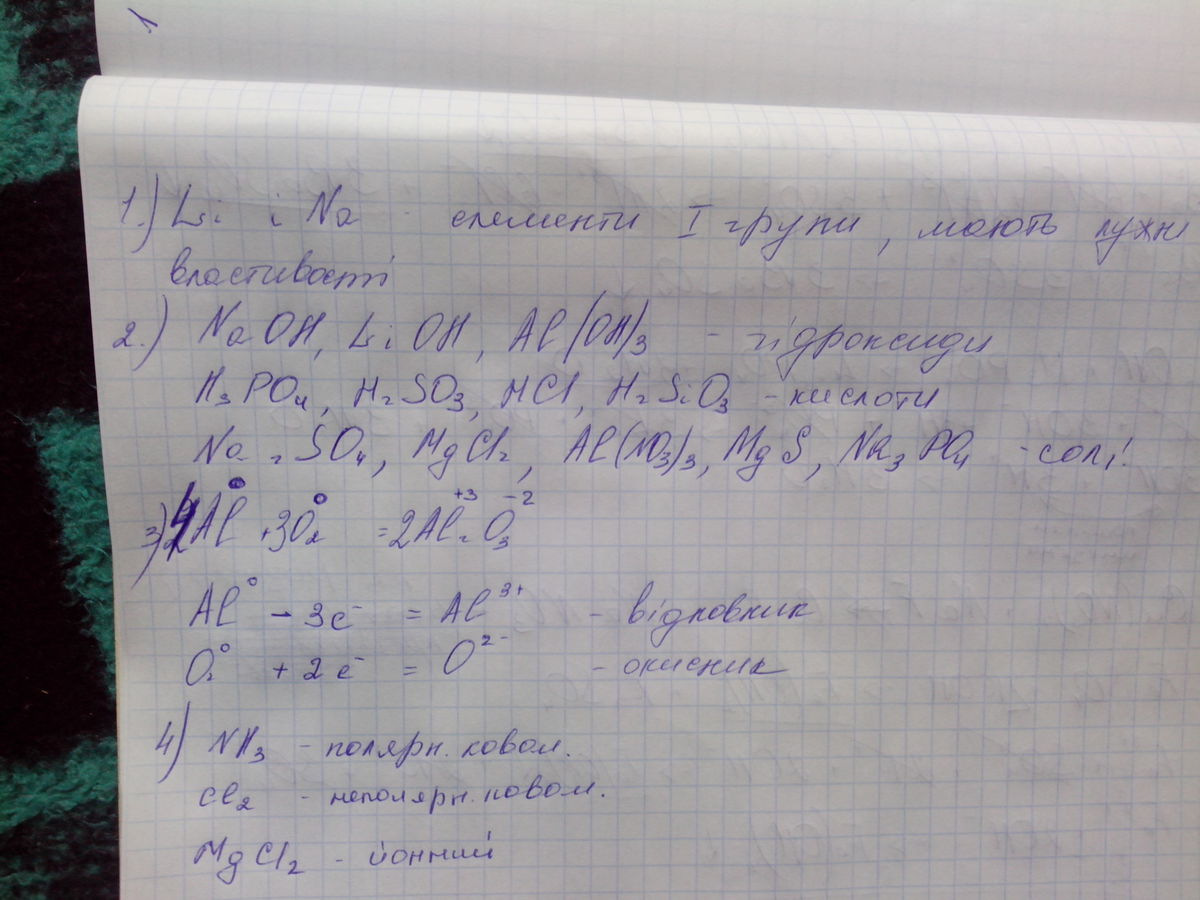 1
1.) Li і Na - елементи I групи, мають лужні
властивості
2.) NaOH, LiOH, Al(OH)3 - гідроксиди
H3PO4, H2SO3, HCl, H2SiO3 - кислоти
Na2SO4, MgCl2, Al(NO3)3, MgS, Na3PO4 - солі!
3) 4Al⁰ + 3O2⁰ = 2Al2⁺³O3⁻²
Al⁰ - 3e⁻ = Al³⁺ - відновник
O2⁰ + 2e⁻ = O²⁻ - окисник
4) NH3 - полярн. ковал.
Cl2 - неполярн. ковал.
MgCl2 - йонний